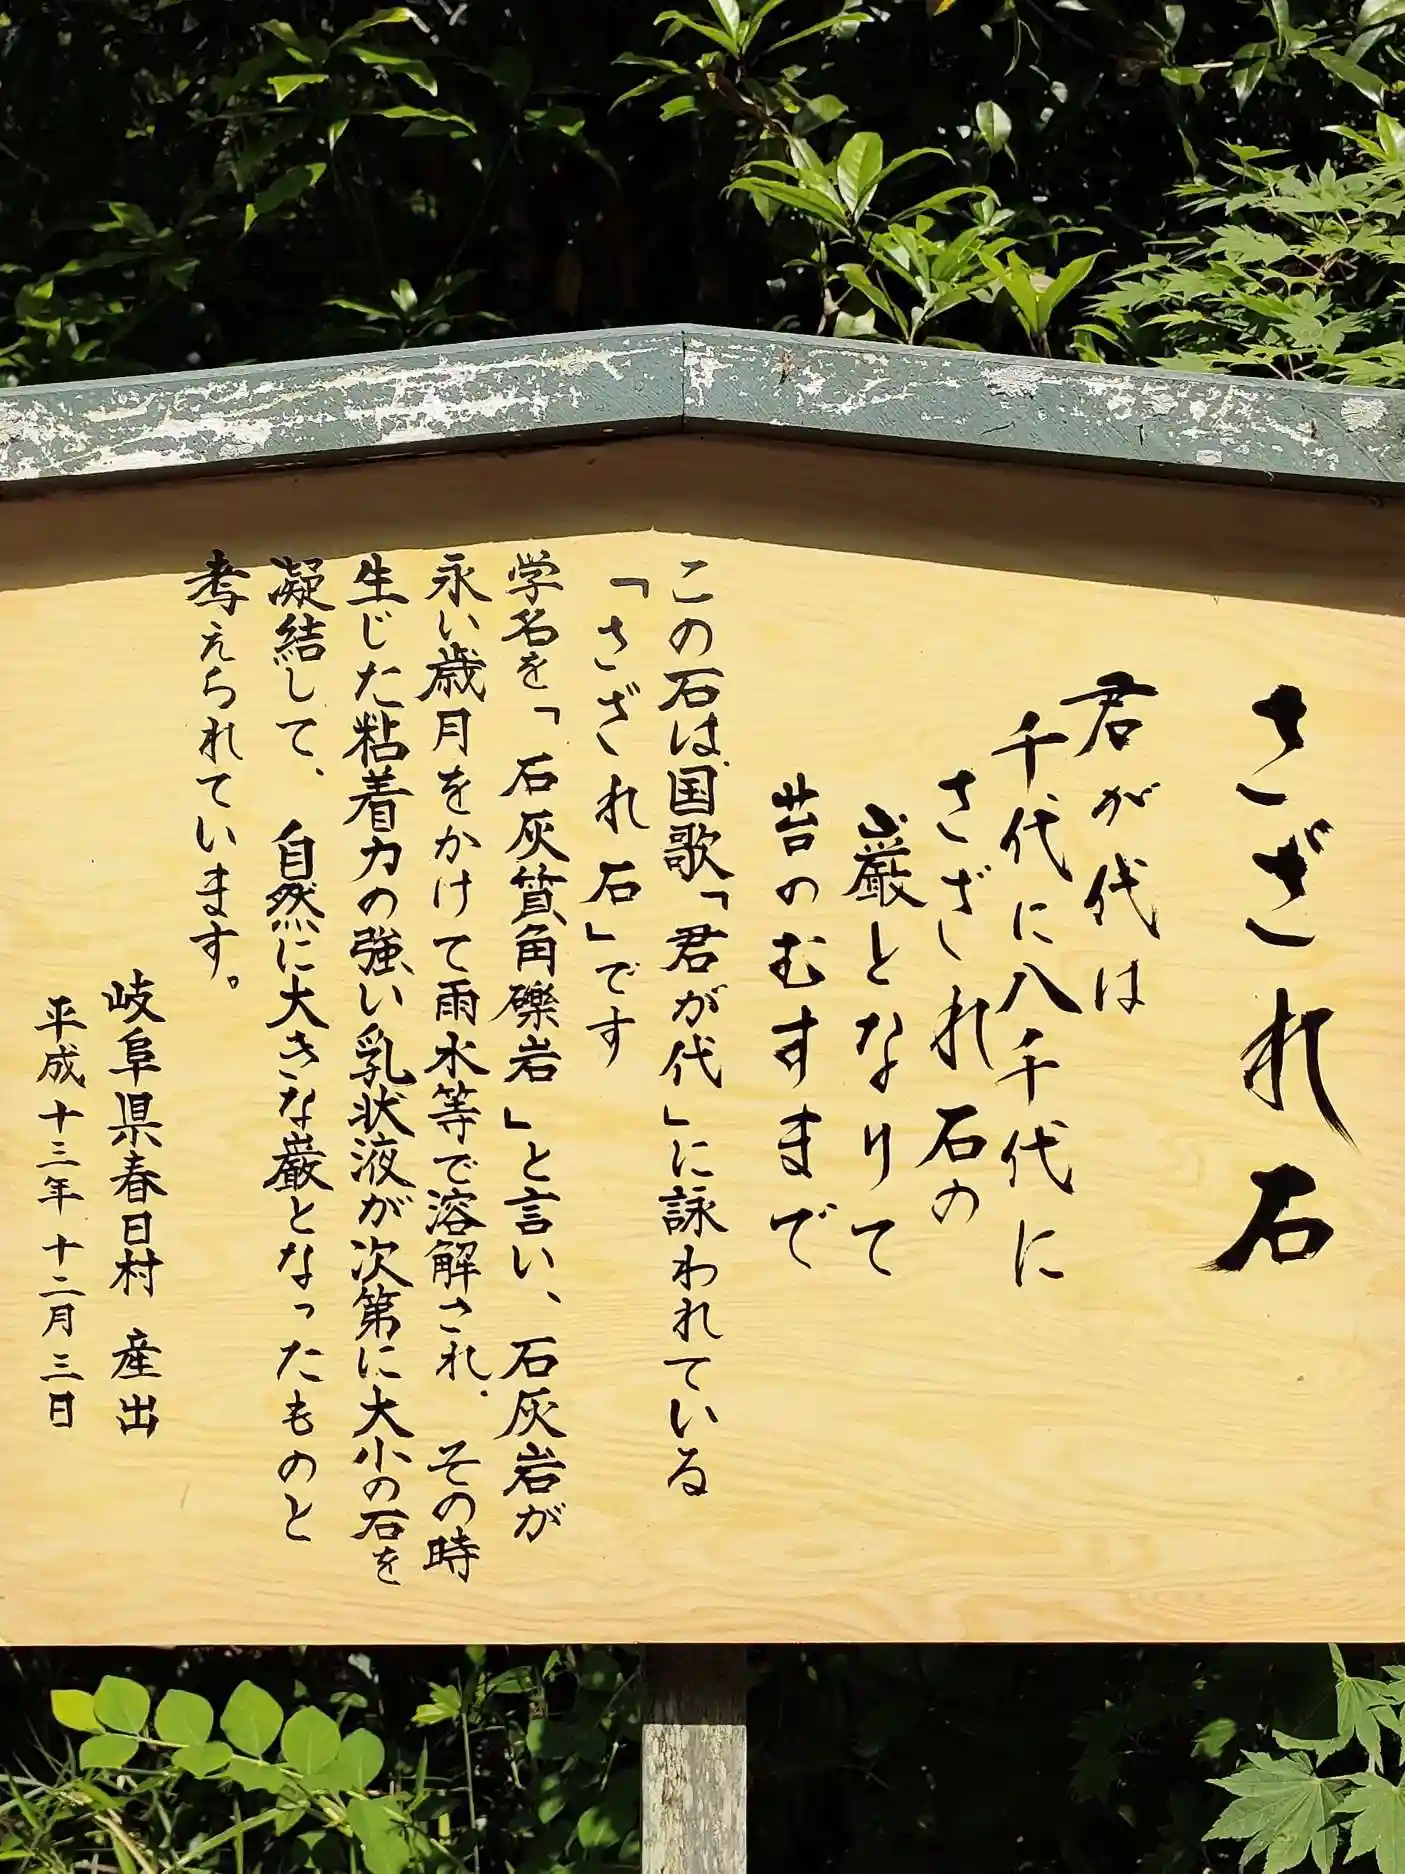 さざれ石
君が代は
千代に八千代に
さざれ石の
巌となりて
苔のむすまで
この石は、国歌「君が代」に詠われている
「さざれ石」です
学名を「石灰質角礫岩」と言い、石灰岩が
永い歳月をかけて雨水等で溶解され、その時
生じた粘着力の強い乳状液が次第に大小の石を
凝結して、自然に大きな巌となったものと
考えられています。
岐阜県春日村 産出
平成十三年十二月三日